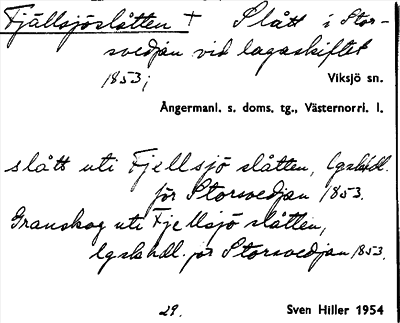 Fjällsjöslåtten + Slått i Stor-
svedjan vid lagaskiftet
1853;
Viksjö sn.
Ångermanl. s. doms. tg., Västernorrl. l.
slått uti Fjellsjö slåtten, lgshdl.
för Storsvedjan 1853.
Granskog uti Fjellsjö slåtten,
lgshdl. för Storsvedjan 1853.
29.
Sven Hiller 1954